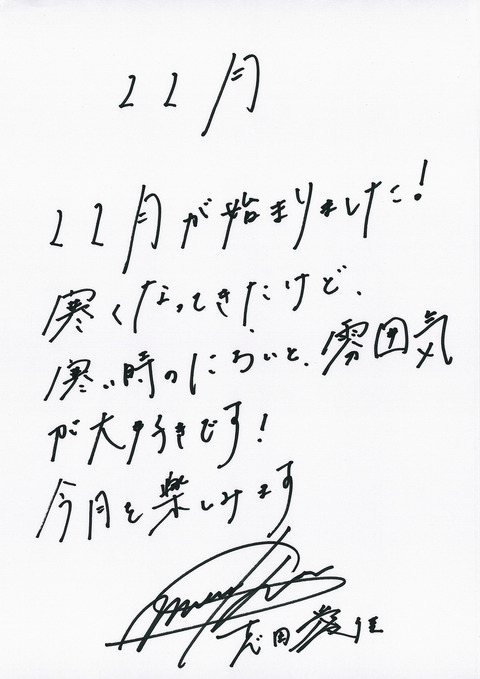 11月
11月が始まりました！
寒くなってきたけど、
寒い時のにおいと、雰囲気
が大好きです！
今月を楽しみます
志田愛佳